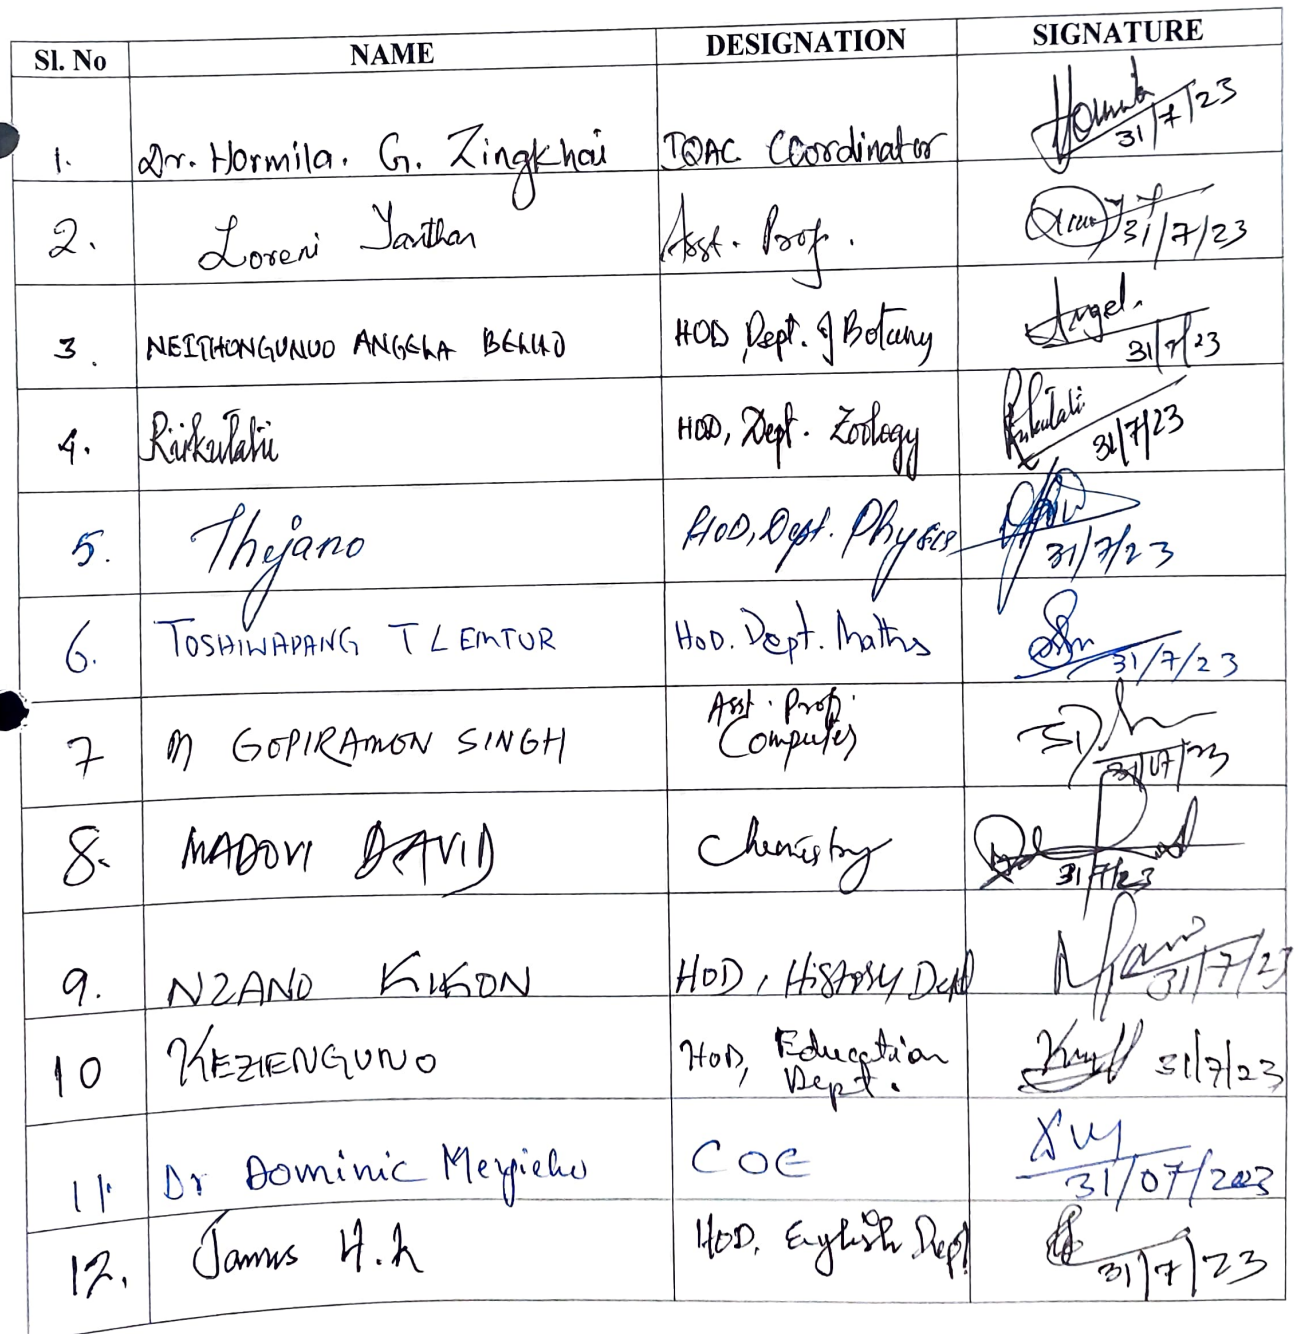 Sl. No NAME DESIGNATION SIGNATURE
1. Dr. Hormila. G. Zingkhai IQAC Coordinator 31/7/23
2. Loreni Yanthan Asst. Prof. 31/7/23
3. NEITHONGUNUO ANGELA BELHO HOD, Dept. of Botany Angel. 31/7/23
4. Rükulalü HOD, Dept. Zoology 31/7/23
5. Thejano HOD, Dept. Physics 31/7/23
6. TOSHIWAPANG T LEMTUR HoD. Dept. Maths 31/7/23
7 M GOPIRAMON SINGH Asst. Prof.
Computer 31/07/23
8. MADOVI DAVID Chemistry 31/7/23
9. NZANO KIKON HOD, History Dept 31/7/23
10 KEZIENGUNO HOD, Education
Dept. 31/7/23
11. Dr Dominic Meyieho COE 31/07/2023
12. James H.K HOD, English Dept 31/7/23